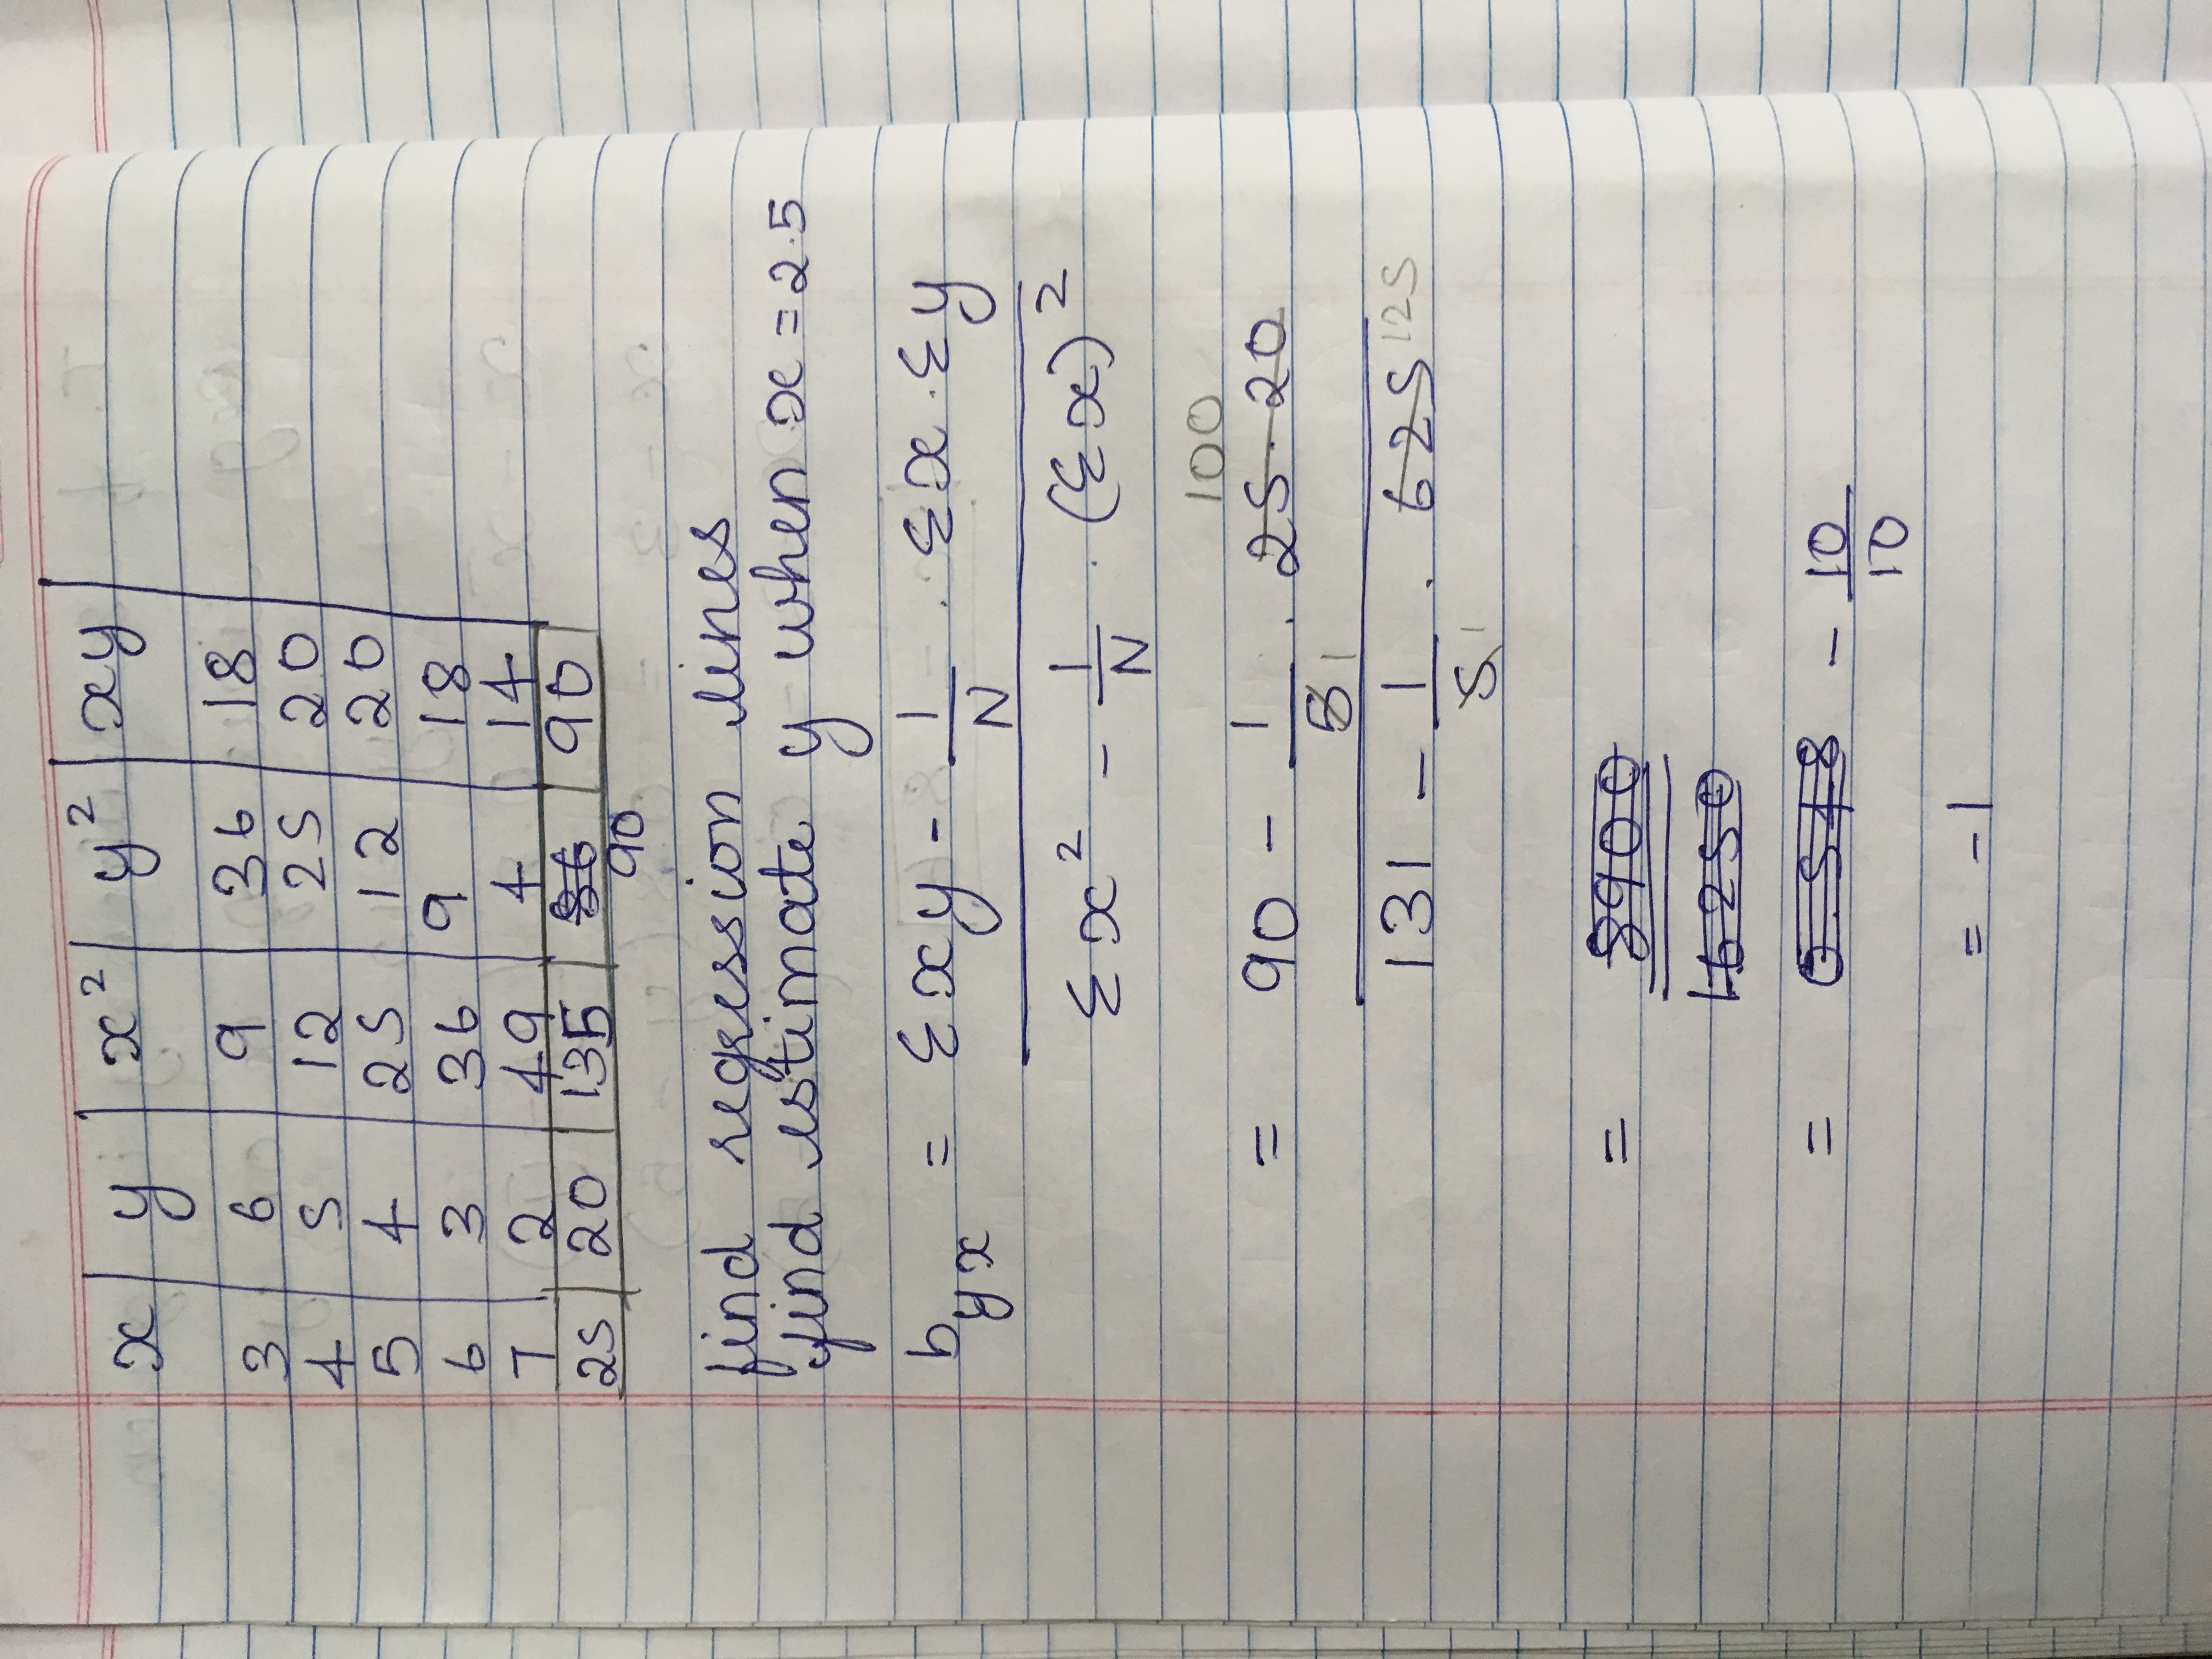 x y x² y² xy
3 6 9 36 18
4 5 12 25 20
5 4 25 12 20
6 3 36 9 18
7 2 49 4 14
25 20 135 86 90
90
find regression lines
find estimate y when x = 2.5
b_yx = Σxy - 1/N · Σx·Σy
Σx² - 1/N · (Σx)²
100
= 90 - 1/5 1 · 25·20
131 - 1/5 1 · 625 125
= 8900
16250
= 0.548 - 10/10
= -1